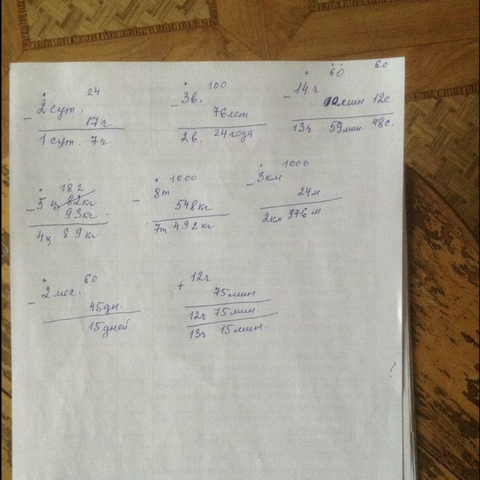 24
- 2 сут.
17ч
1 сут. 7ч
100
- 3в.
76 лет
2в. 24 года
60 60
- 14ч.
мин 12с.
13ч 59мин. 48с.
182
- 5 ц 82кг
93кг
4ц 89кг
1000
- 8т
548кг
7т 492кг
1000
- 3км
24м
2км 976м
60
- 2 мес.
45дн.
15дней
+ 12ч
75мин
12ч 75мин.
13ч 15мин.